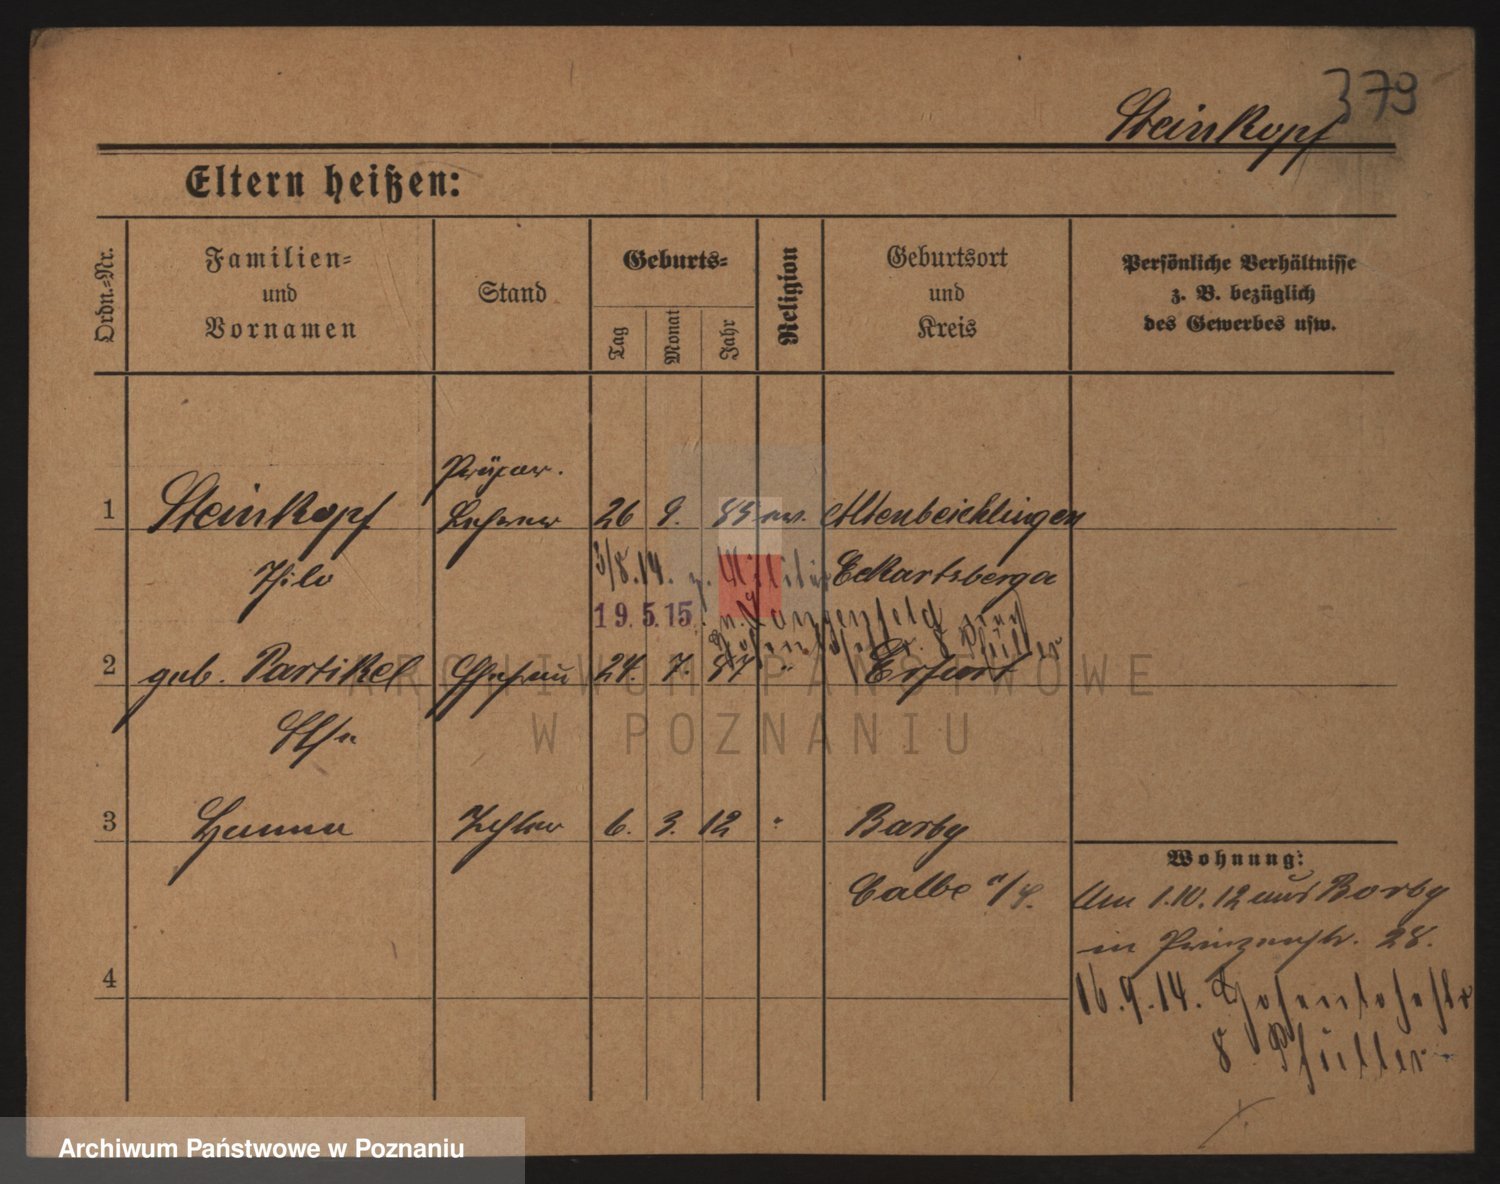 379
Steinkopf
Eltern heißen:
Ordn.-Nr.
Familien-
und
Vornamen
Stand
Geburts-
Tag
Monat
Jahr
Religion
Geburtsort
und
Kreis
Persönliche Verhältnisse
z. B. bezüglich
des Gewerbes usw.
Präpar.
1 Steinkopf Lehrer 26 9. ev. Altenbeichlingen
Thilo
3/8.14. z. Militär
Eckartsberga
19.5.15. n. Langenfeld
2 geb. Partikel Ehefrau 24. 7. 87 " Erfurt
Else
ARCHIWUM PAŃSTWOWE
W POZNANIU
3 Hanna Tochter 6. 3. 12 " Barby
Calbe a/S.
Wohnung:
Am 1.10.12 aus Barby
in Prinzenstr. 28.
16.9.14. Hohenlohestr
8
4
Archiwum Państwowe w Poznaniu